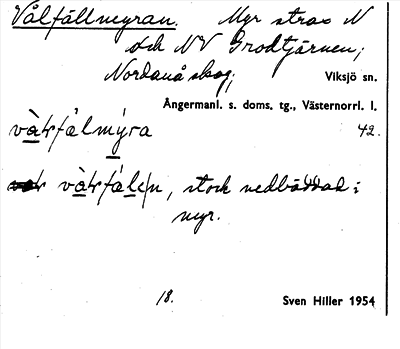 Vålfällmyran. Myr strax N
och NV Grodtjärnen;
Nordanå skog; Viksjö sn.
Ångermanl. s. doms. tg., Västernorrl. l.
42.
stock nedbäddad i
myr.
18. Sven Hiller 1954